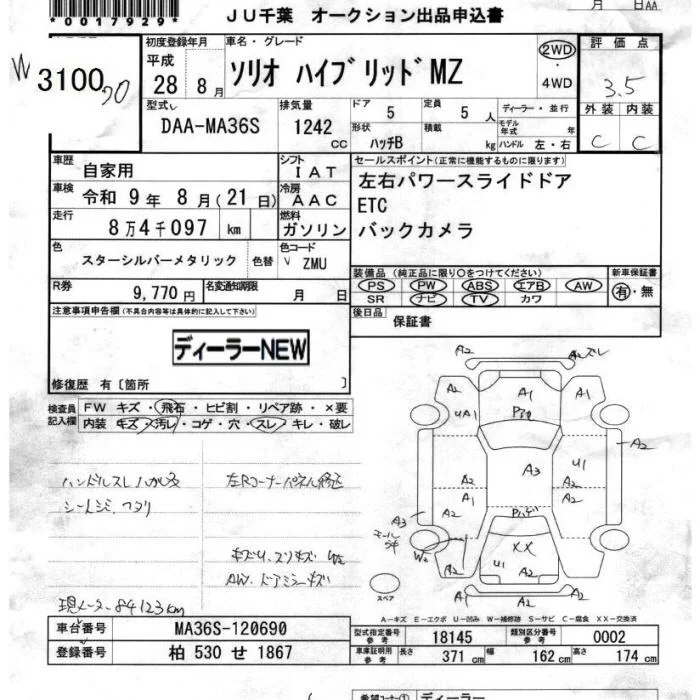 *0017929*
JU千葉 オークション出品申込書
月 日AA
W 3100 70
初度登録年月 平成 28 8月
車名・グレード ソリオ ハイブリッドMZ
2WD ・ 4WD
評価点 3.5
外装 内装
C C
型式 DAA-MA36S
排気量 1242 cc
ドア 5 定員 5人
形状 ハッチB 積載 kg
ディーラー・並行
モデル年式 年
ハンドル 左・右
車歴 自家用
シフト IAT
セールスポイント(正常に機能するものに限ります)
車検 令和 9年 8月(21日)
冷房 AAC
左右パワースライドドア
ETC
バックカメラ
走行 8万4千097 km
燃料 ガソリン
色 スターシルバーメタリック 色替
色コード ZMU
装備品(純正品に限り○をつけてください)
新車保証書
PS PW ABS エアB AW
SR ナビ TV カワ
有・無
R券 9,770円
名変通知期限 月 日
後日品 保証書
注意事項申告欄(不具合内容等は具体的に記入して下さい)
ディーラーNEW
修復歴 有〔箇所 〕
検査員記入欄
FW キズ・飛石・ヒビ割・リペア跡・×要
内装 キズ・汚レ・コゲ・穴・スレ・キレ・破レ
ハンドルスレ ハガレ
左Rコーナーパネル修正
AW、ドアミラーキズ
現メーター 84123km
A2
A2
A1
A1
A2
UA1
A2
A3
U1
A2
A2
A2
A3
モール
W2
XX
U1
A2
A2
A1
A2
スペア
A-キズ E-エクボ U-凹み W-補修跡 S-サビ C-腐食 XX-交換済
車台番号 MA36S-120690
型式指定番号 参考 18145
類別区分番号 参考 0002
登録番号 柏 530 せ 1867
車庫証明用 参考 長さ 371 cm 幅 162 cm 高さ 174 cm
希望コーナー① ディーラー